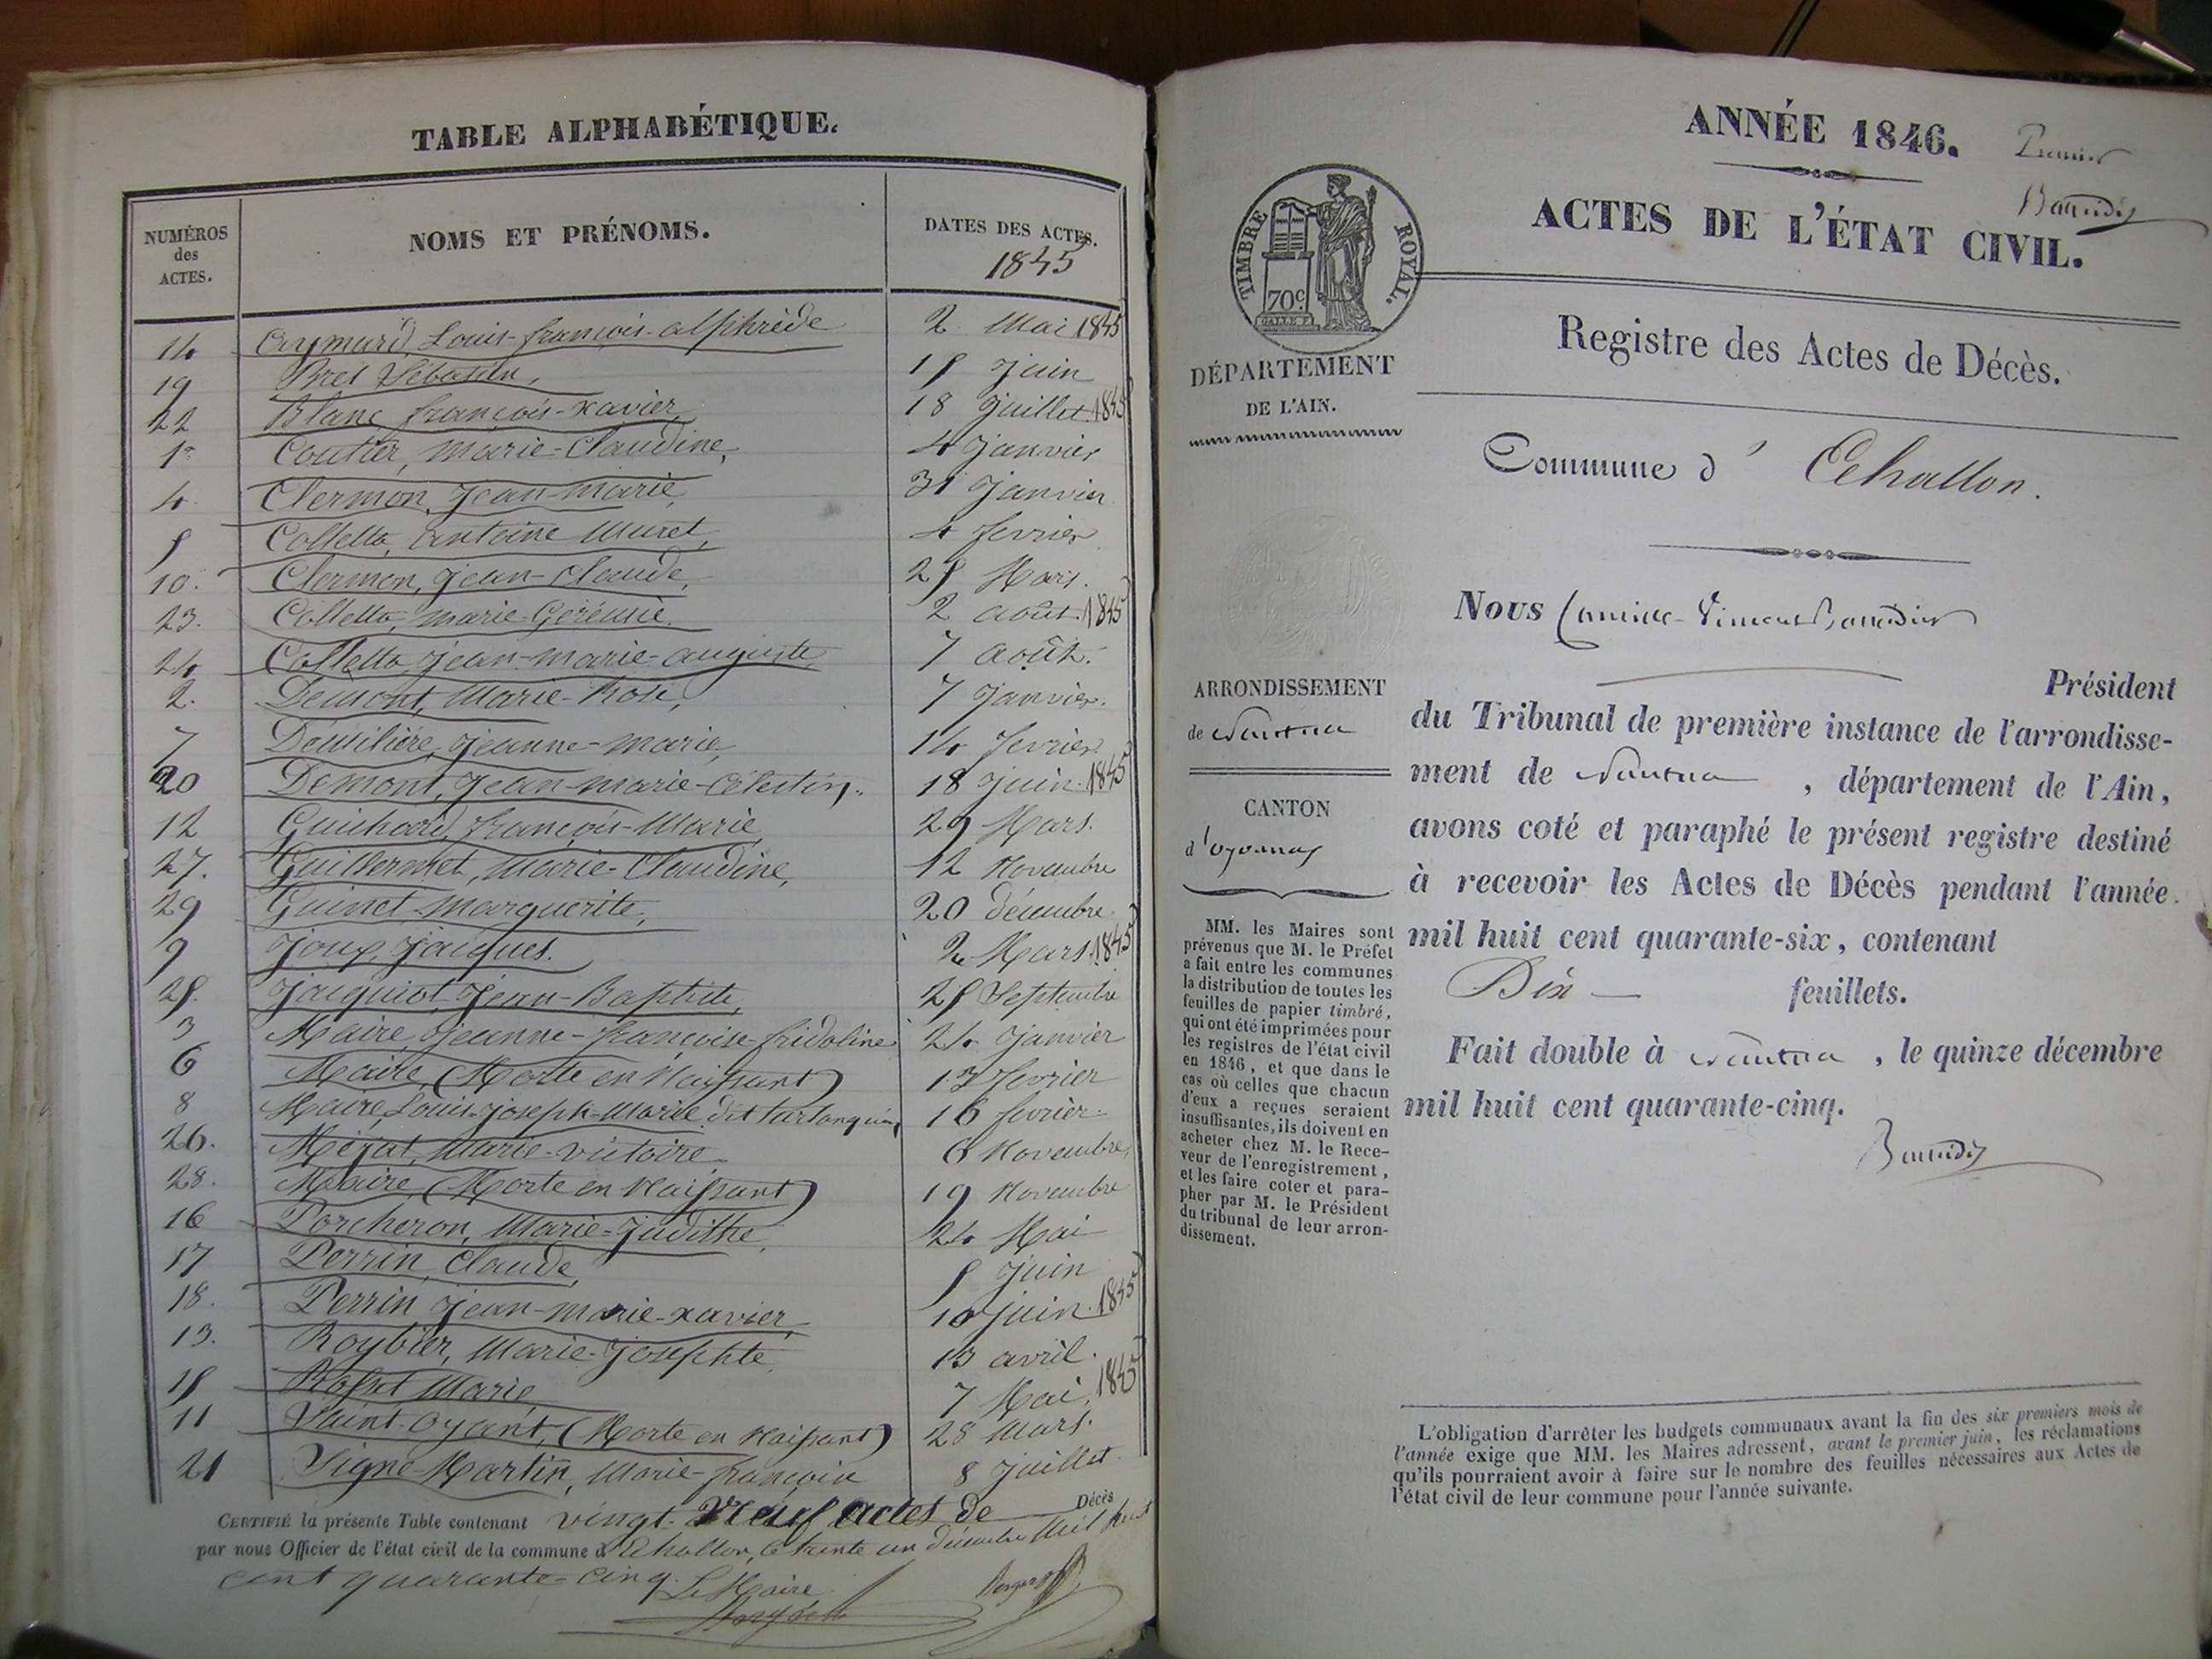 TABLE ALPHABÉTIQUE.
NUMÉROS des ACTES. NOMS ET PRÉNOMS. DATES DES ACTES.
1845
14 Aymard, Louis-françois-alphrède 2 Mai 1845
19 Bret Sébastin, 15 Juin
22 Blanc françois-xavier, 18 Juillet 1845
1er Coutier, Marie-Claudine, 4 Janvier
4 Clermon, Jean-marie, 31 Janvier
5 Colletta, antoine Muret, 4 fevrier
10. Clermon, Jean-Claude, 25 Mars.
23. Colletta, marie 2 août. 1845
24 Colletta Jean-marie-auguste 7 août.
2. Démont, Marie-Rose, 7 Janvier.
7 Jeanne-marie, 14 fevrier
20 Démont, Jean-marie-Célestin. 18 Juin. 1845
12 Guichard, françois-Marie 29 Mars.
27. Guillermet, Marie-Claudine, 12 Novembre
29 Guinet Marguerite, 20 décembre
9 Joux, Jacques. 2 Mars. 1845
25. Jacquiot Jean-Baptiste, 25 Septembre
3 Maire Jeanne-françoise-fridoline 24 Janvier
6 Maire, (Morte en Naissant) 13 fevrier
8 Maire, Louis-Joseph-Marie dit 16 fevrier.
26. Marie-victoire 6 Novembre,
28. Maire, (Morte en Naissant) 19 Novembre
16 Porcheron, Marie-Judithe, 24 Mai
17 Perrin, Claude, 5 Juin
18. Perrin Jean-marie-xavier, 10 juin. 1845
13. Roybier, Marie-Josephte, 13 avril.
15 Rosset Marie 7 Mai, 1845
11 Saint-Oyant, (Morte en Naissant) 28 Mars.
21 Signe-Martin, Marie-françoise 8 Juillet
CERTIFIÉ la présente Table contenant vingt-Neuf actes de Décès
par nous Officier de l'état civil de la commune d'Echallon, le trente un décembre Mil huit
cent quarante-cinq.
Le Maire
ANNÉE 1846. Premier
ACTES DE L'ÉTAT CIVIL.
TIMBRE ROYAL.
70c
Registre des Actes de Décès.
DÉPARTEMENT
DE L'AIN.
Commune d' Echallon.
Nous Camille-Vincent Baudier
Président
ARRONDISSEMENT
de Nantua
du Tribunal de première instance de l'arrondisse-
ment de Nantua, département de l'Ain,
CANTON
d'oyonnax
avons coté et paraphé le présent registre destiné
à recevoir les Actes de Décès pendant l'année
mil huit cent quarante-six, contenant
Dix feuillets.
Fait double à Nantua, le quinze décembre
mil huit cent quarante-cinq.
MM. les Maires sont
prévenus que M. le Préfet
a fait entre les communes
la distribution de toutes les
feuilles de papier timbré,
qui ont été imprimées pour
les registres de l'état civil
en 1846, et que dans le
cas où celles que chacun
d'eux a reçues seraient
insuffisantes, ils doivent en
acheter chez M. le Rece-
veur de l'enregistrement,
et les faire coter et para-
pher par M. le Président
du tribunal de leur arron-
dissement.
L'obligation d'arrêter les budgets communaux avant la fin des six premiers mois de
l'année exige que MM. les Maires adressent, avant le premier juin, les réclamations
qu'ils pourraient avoir à faire sur le nombre des feuilles nécessaires aux Actes de
l'état civil de leur commune pour l'année suivante.